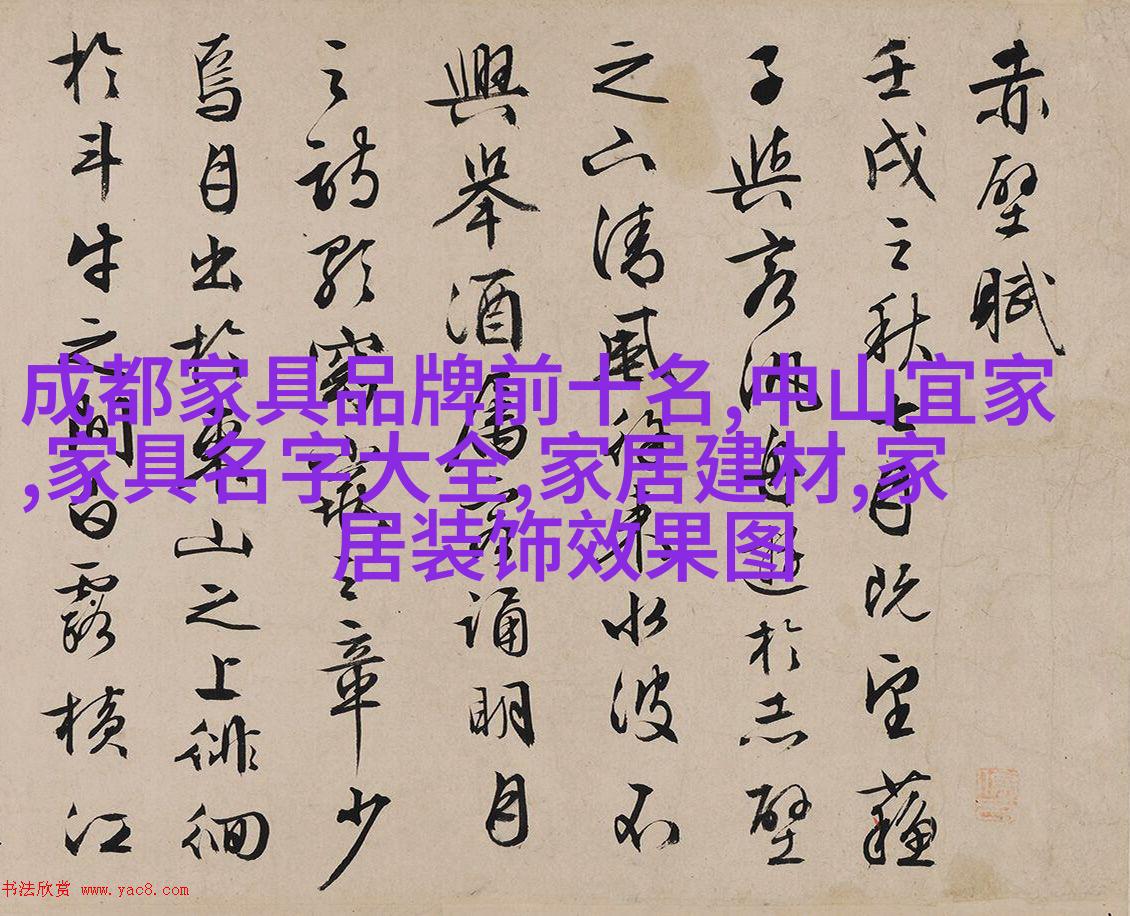 赤壁賦
壬戌之秋七月既望蘇
子與客泛舟遊於赤壁
之下清風徐来水波不
興舉酒屬客誦明月
之詩歌窈窕之章少
焉月出於東山之上徘徊
於斗牛之間白露橫江
成都家具品牌前十名,中山宜家
,家具名字大全,家居建材,家
居装饰效果图
书法欣赏 www.yac8.com